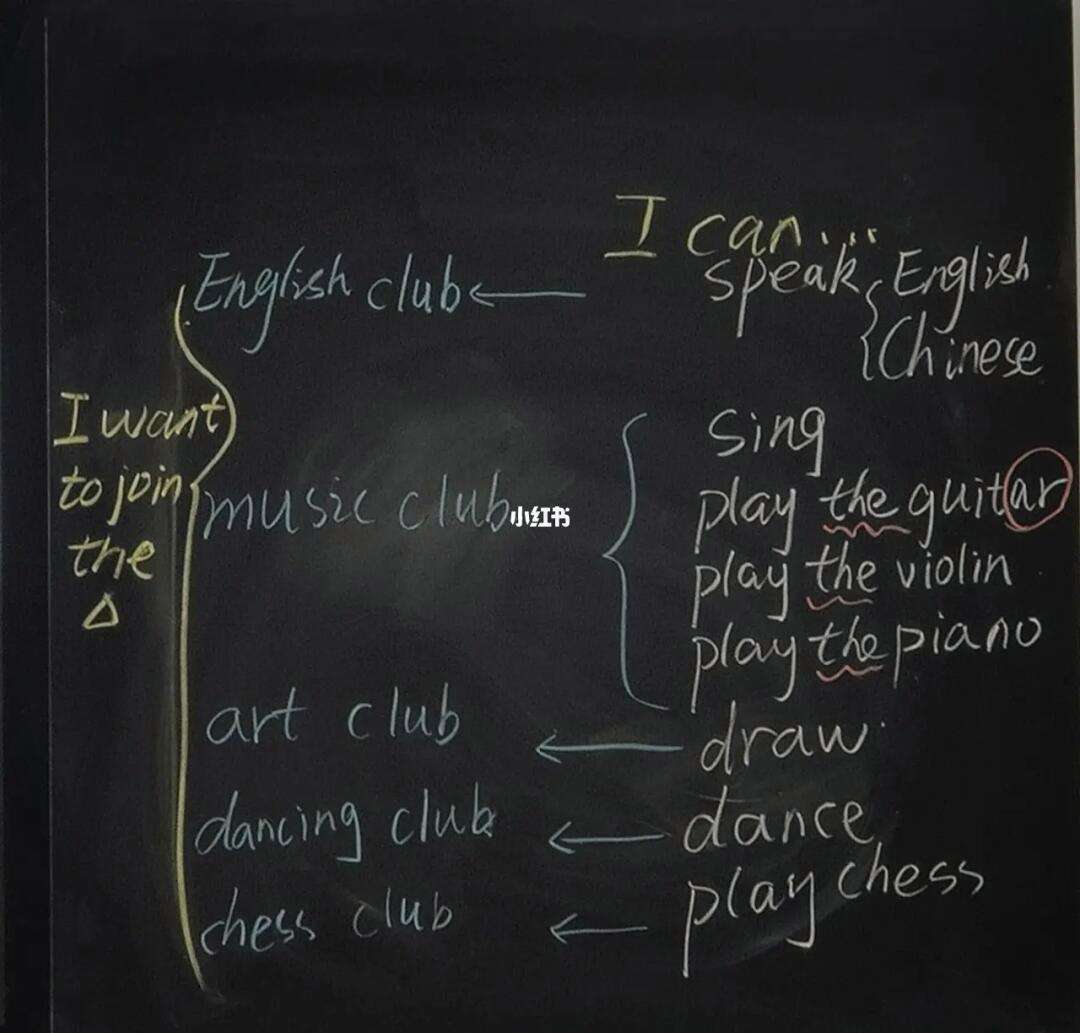 I can...
English club
speak English
Chinese
I want
to join
the
sing
music club
小红书
play the guitar
play the violin
play the piano
art club
draw
dancing club
dance
chess club
play chess